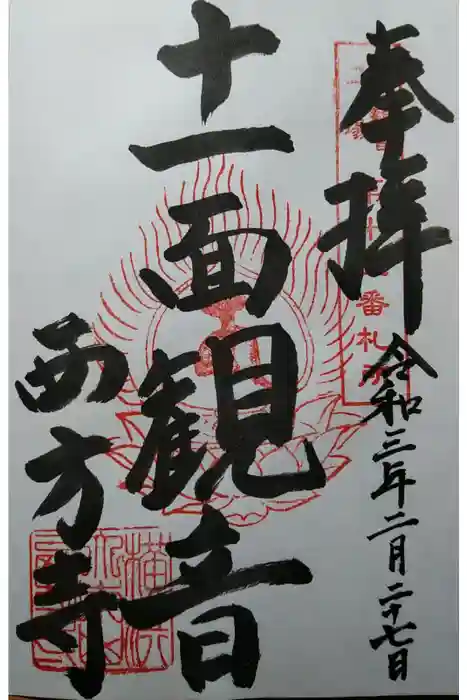 奉拝
令和三年二月二十七日
十一面観音
西方寺
番札所